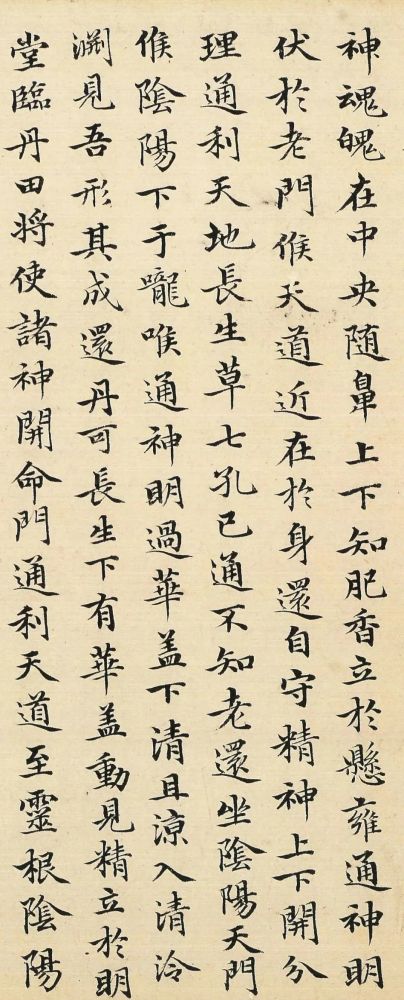 神魂魄在中央随鼻上下知肥香立於懸雍通神明
伏於老門候天道近在於身還自守精神上下開分
理通利天地長生草七孔已通不知老還坐陰陽天門
候陰陽下于嚨喉通神明過華盖下清且涼入清泠
淵見吾形其成還丹可長生下有華盖動見精立於明
堂臨丹田将使諸神開命門通利天道至靈根陰陽